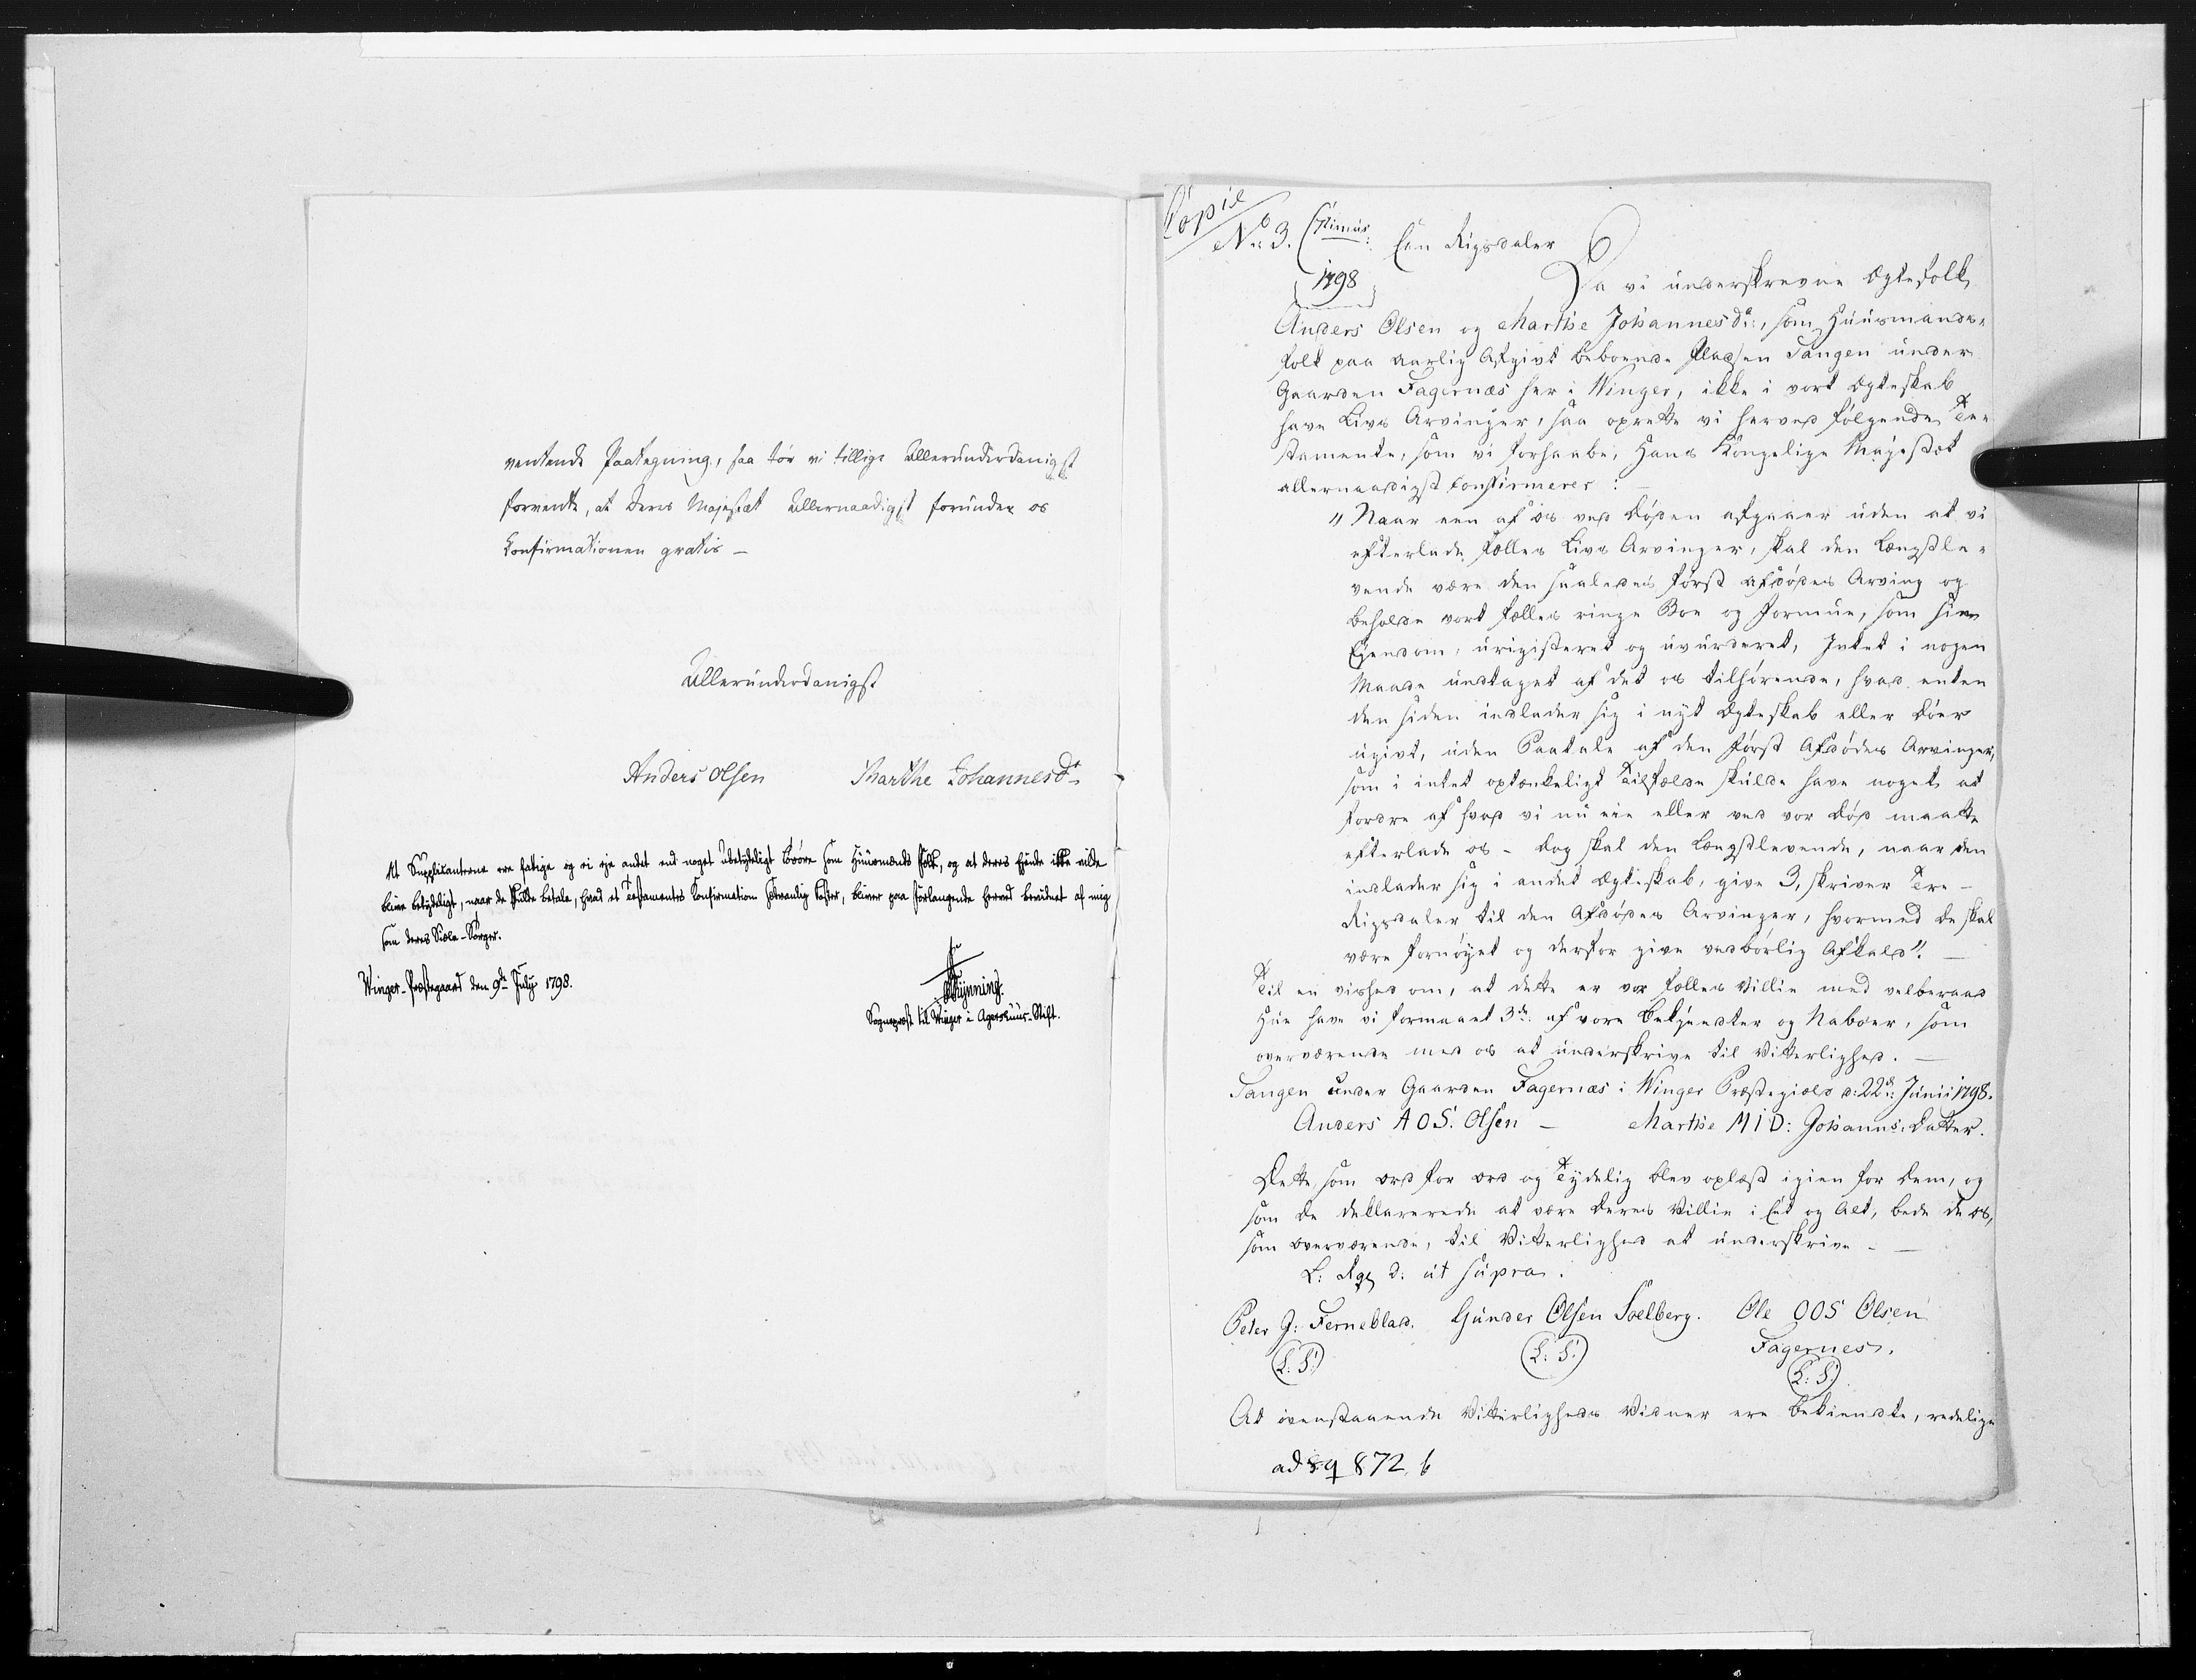 ventende Paategning, saa tør vi tillige Allerunderdanigst
forvente, at Deres Majestæt Allernaadigst forunder os
Confirmationen gratis –
Allerunderdanigst
Anders Olsen Marthe Johannesdr
At Supplicanterne ere fattige og ei eje andet end noget ubetydeligt Boøre som Huusmands Folk, og at deres Ejende ikke vilde
blive betydeligt, naar de skulle betale, hvad et Testamentes Confirmation sædvanlig koster, bliver paa Forlangende herved bevidnet af mig
som deres Siæle-Sørger.
Winger-Præstegaard den 9de July 1798.
Sognepræst til Winger i Aggershuus-Stift.
Copie
No 3. 6
Een Rigsdaler
1798
Da vi underskrevne Ægtefolk
Anders Olsen og Marthe Johannesdr:, som Huusmands-
folk paa aarlig Afgivt beboende Pladsen Tangen under
Gaarden Fagernæs her i Winger, ikke i vort Ægteskab
have Livs Arvinger, saa oprette vi herved følgende Te-
stamente, som vi forhaabe, Hans Kongelige Majestæt
allernaadigst confirmerer: –
"Naar een af os ved Døden afgaaer uden at vi
efterlade fælles Livs Arvinger, skal den Længstle-
vende være den saaledes først afdødes Arving og
beholde vort fælles ringe Boe og Formue, som sin
Ejendom, uregisteret og uvurderet, Intet i nogen
Maade undtaget af det os tilhørende, hvad enten
den siden indlader sig i nyt Ægteskab eller døer
ugivt, uden Paatale af den først Afdødes Arvinger,
som i intet optænkeligt Tilfælde skulde have noget at
fordre af hvad vi nu eie eller ved vor Død maatte
efterlade os – dog skal den Længstlevende, naar den
indlader sig i andet Ægteskab, give 3, skriver Tre –
Rigsdaler til den Afdødes Arvinger, hvormed de skal
være fornøyet og derfor give vedbørlig Afkald". –
Til en vished om, at dette er vor fælles Villie med velberaad
Hue have vi formaaet 3de: af vore Bekjendter og Naboer, som
overværende med os at underskrive til Vitterlighed. –
Tangen under Gaarden Fagernæs i Winger Præstegield d: 22de: Junii 1798.
Anders AOS. Olsen – Marthe MID: Johanns: Datter.
Dette, som ord for ord og Tydelig blev oplæst igien for dem, og
som de deklarerede at være deres Villie i Eet og Alt, bede de os,
som overværende, til Vitterlighed at underskrive – –
L: d: ut supra.
Peter J: Ferneblad. Gunder Olsen Soelberg. Ole OOS Olsen
Fagernes.
(L: S:) (L: S:) (L: S:)
At ovenstaaende Vitterligheds Vidner ere bekiendte, redelige
ad 872 b